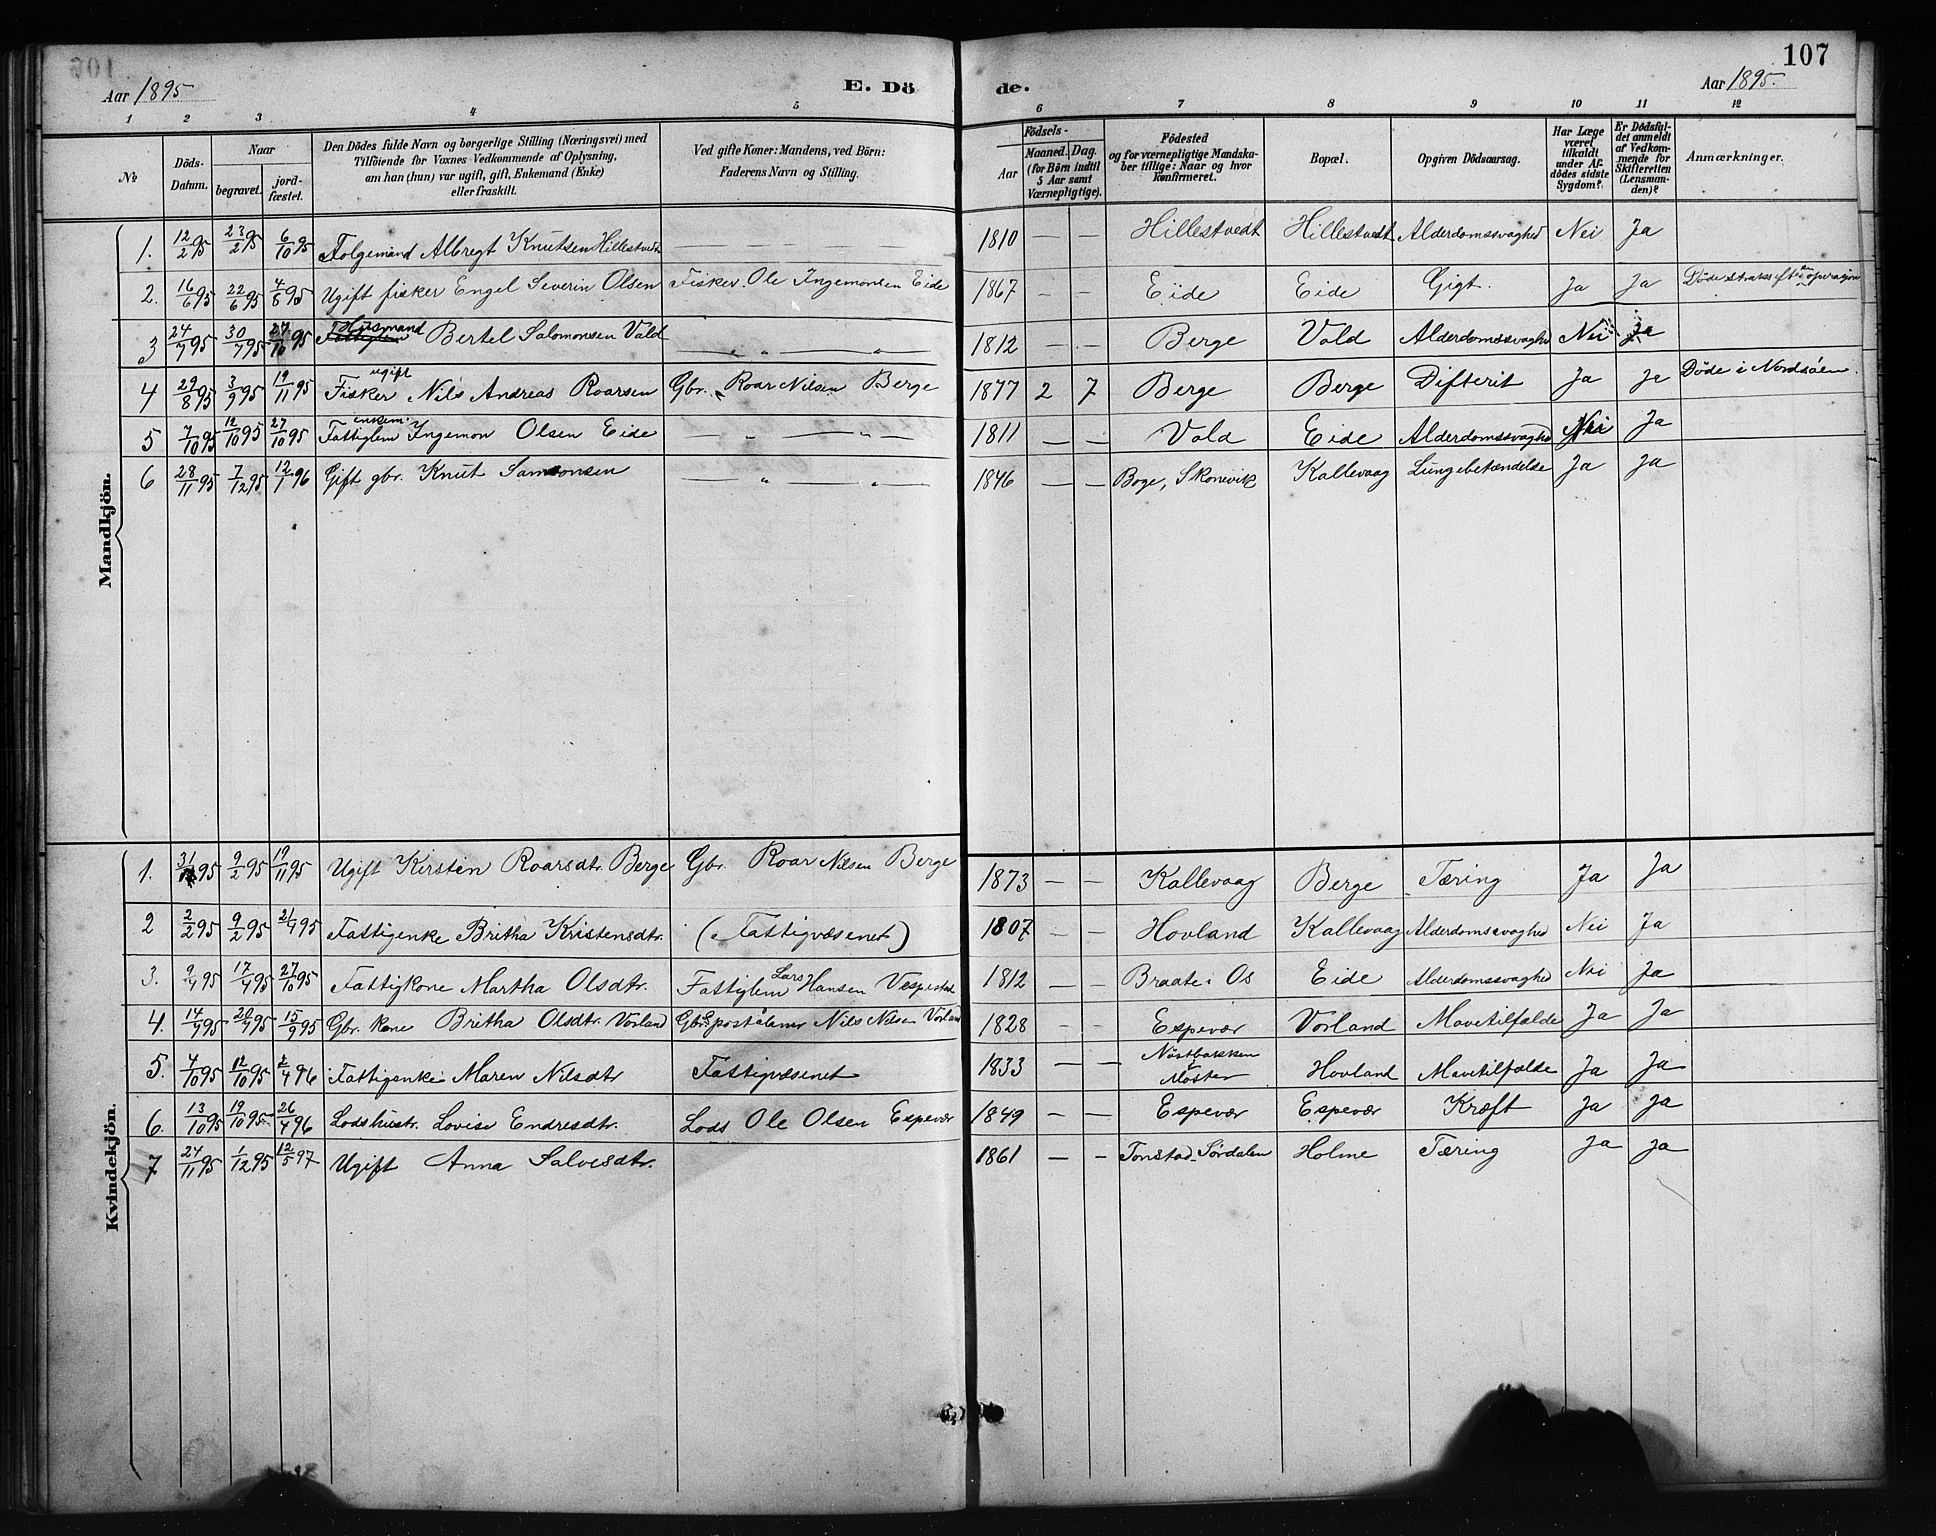 Aar 1895 E. Dö
de. Aar 1895. 107
1 2 3 4 5 6 7 8 9 10 11 12
No
Döds-Datum.
Naar
begravet.
jord-fæstet.
Den Dödes fulde Navn og borgerlige Stilling (Næringsvei) med
Tilföiende for Voxnes Vedkommende af Oplysning,
om han (hun) var ugift, gift, Enkemand (Enke)
eller fraskilt.
Ved gifte Koner: Mandens, ved Börn:
Faderens Navn og Stilling.
Födsels-
Aar
Maaned. Dag.
(for Börn indtil
5 Aar samt
Værnepligtige).
Födested
og for værnepligtige Mandska-
ber tillige: Naar og hvor
konfirmeret.
Bopæl.
Opgiven Dödsaarsag.
Har Læge
været
tilkaldt
under Af-
dödes sidste
Sygdom?
Er Dödsfal-
det anmeldt
af Vedkom-
mende for
Skifteretten
(Lensman-
den)?
Anmærkninger.
Mandkjön.
1. 12/2 95 23/2 95 6/10 95 Folgemand Albregt Knutsen Hillestvedt — — 1810 — — Hillestvedt Hillestvedt Alderdomssvaghed Nei Ja
2. 16/6 95 22/6 95 4/8 95 Ugift fisker Engel Severin Olsen Fisker Ole Ingemonsen Eide 1867 — — Eide Eide Gigt. Ja Ja Döde straks efter en operasjon
3 24/7 95 30/7 95 27/10 95 Husmand Bertel Salomonsen Vald — „ — „ — 1812 — — Berge Vald Alderdomssvaghed Nei Ja
4 29/8 95 3/9 95 19/11 95 Fisker ugift Nils Andreas Roarsen Gbr. Roar Nilsen Berge 1877 2 7 Berge Berge Difterit Ja Ja Döde i Nordsöen.
5 7/10 95 12/10 95 27/10 95 Fattiglem enkem. Ingemon Olsen Eide — „ — „ — 1811 — — Vald Eide Alderdomssvaghed Nei Ja
6 28/11 95 7/12 95 12/1 96 Gift gbr. Knut Samsonsen — „ — „ — 1846 — — Boge, Skonevik Kallevaag Lungebetændelse Ja Ja
Kvindekjön.
1. 31/1 95 9/2 95 19/11 95 Ugift Kirsten Roarsdtr. Berge Gbr. Roar Nilsen Berge 1873 — — Kallevaag Berge Tæring Ja Ja
2 2/2 95 9/2 95 21/4 95 Fattigenke Britha Kristensdtr. (Fattigvæsenet) 1807 — — Hovland Kallevaag Alderdomssvaghed Nei Ja
3. 9/4 95 17/4 95 27/10 95 Fattigkone Martha Olsdtr. Fattiglem Lars Hansen Vespestad 1812 — — Braate i Os Eide Alderdomssvaghed Nei Ja
4. 14/9 95 20/9 95 15/9 95 Gbr. kone Britha Olsdtr. Vorland Gbr. & postaabner Nils Nilsen Vorland 1828 — — Espevær Vorland Mavetilfælde Ja Ja
5. 4/10 95 12/10 95 2/4 96 Fattigenke Maren Nilsdtr Fattigvæsenet 1833 — — Nöstbakken Möster Hovland Mavetilfælde Ja Ja
6. 13/10 95 19/10 95 26/4 96 Lodshustr. Lovise Endresdtr. Lods Ole Olsen Espevær 1849 — — Espevær Espevær Kræft Ja Ja
7 24/11 95 1/12 95 12/5 97 Ugift Anna Salvesdtr. 1861 — — Tonstad Sördalen Holme Tæring Ja Ja